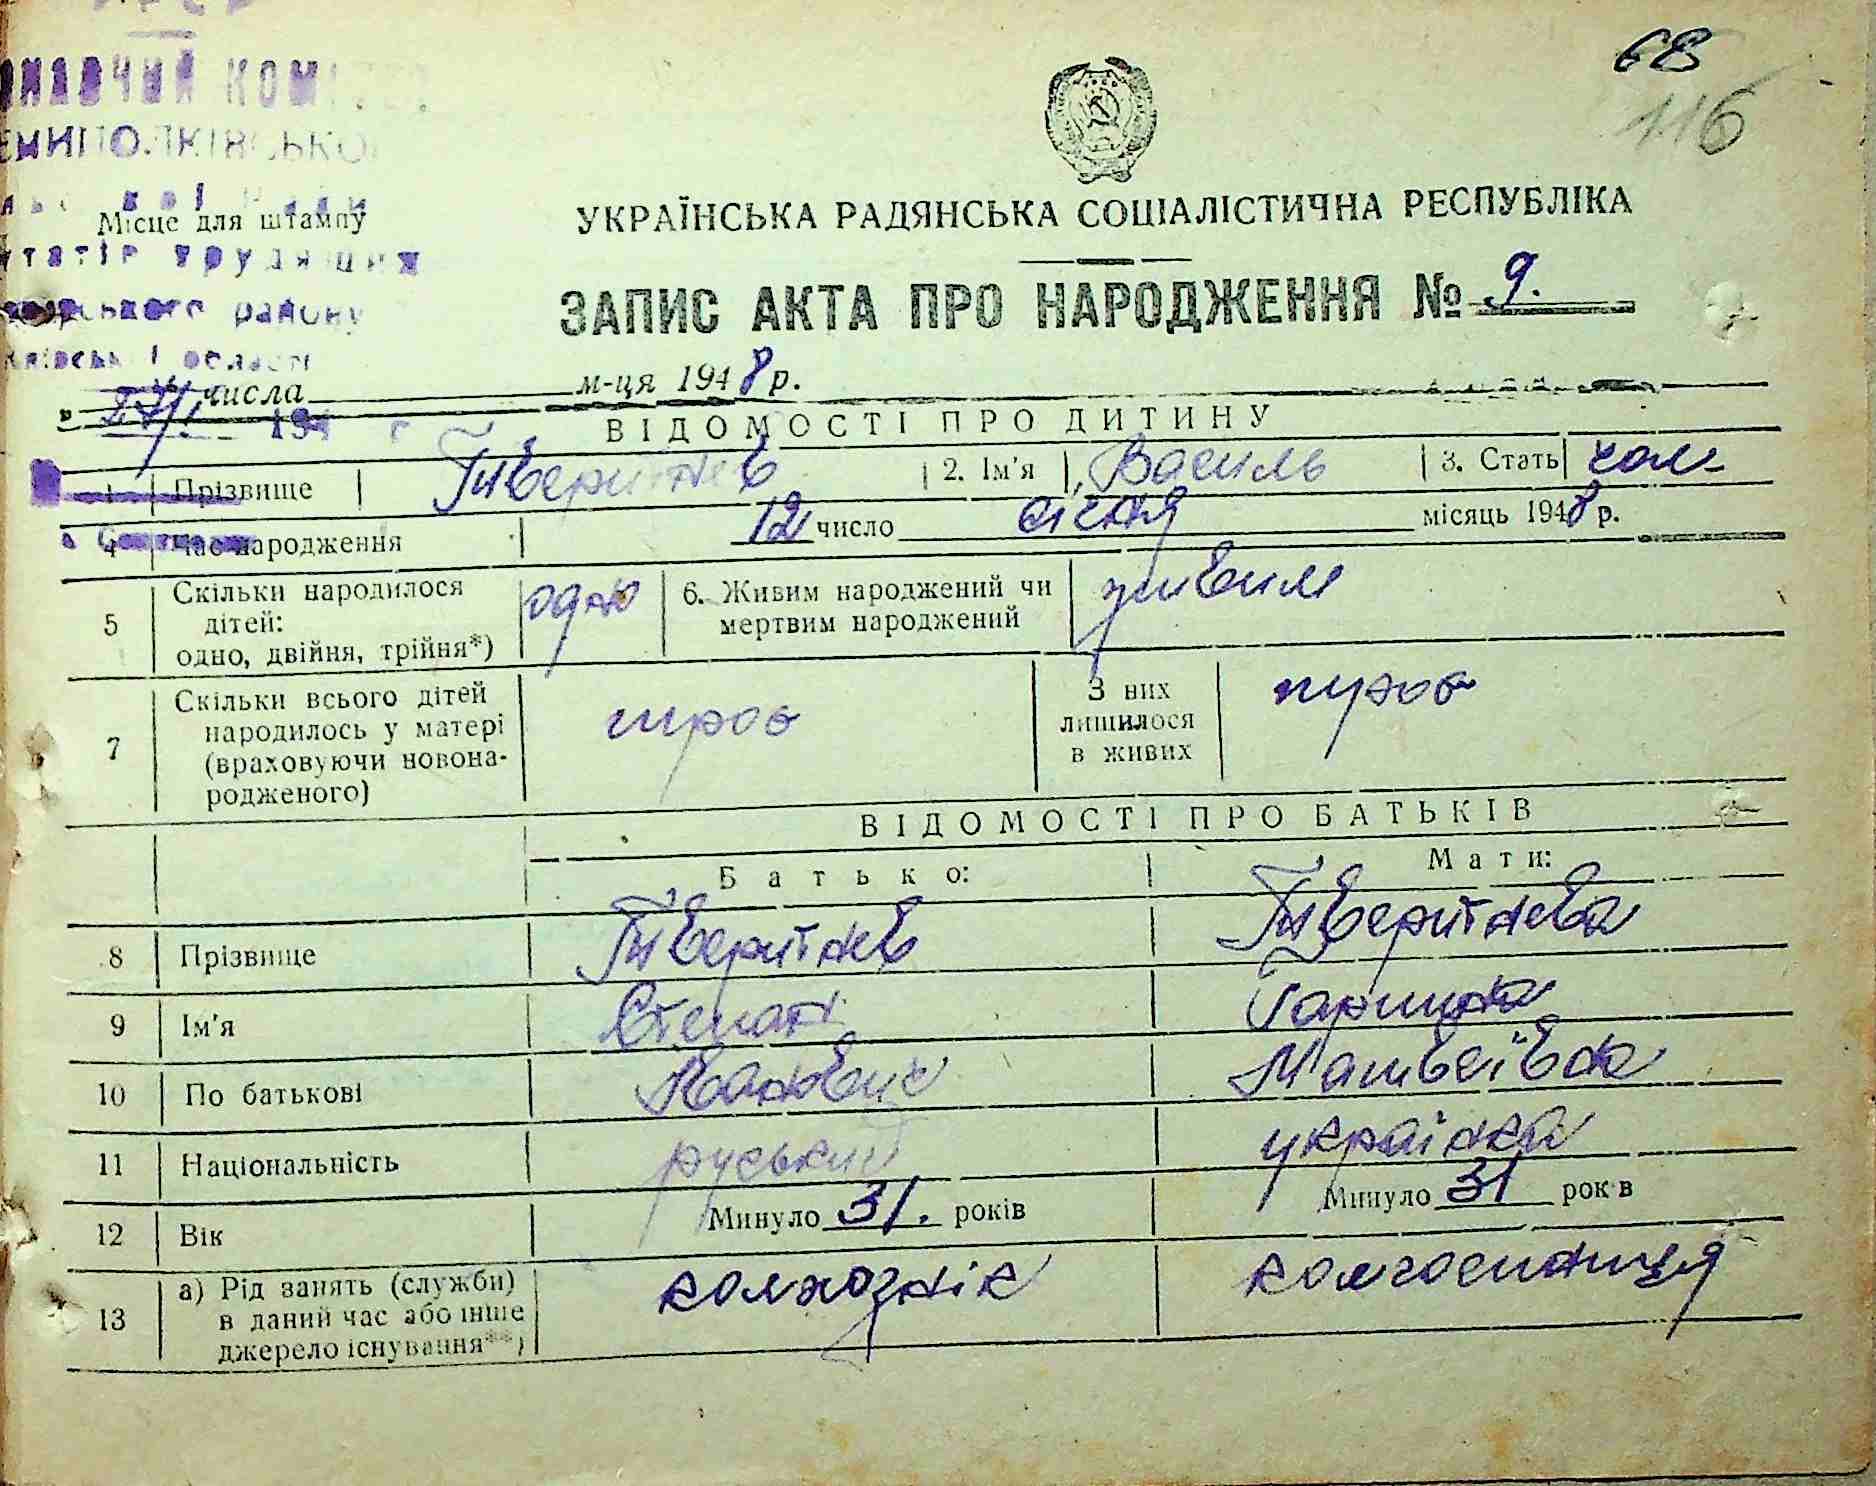 68
116
УКРАЇНСЬКА РАДЯНСЬКА СОЦІАЛІСТИЧНА РЕСПУБЛІКА
Місце для штампу
ЗАПИС АКТА ПРО НАРОДЖЕННЯ № 9.
числа м-ця 1948 р.
ВІДОМОСТІ ПРО ДИТИНУ
1 Прізвище Тивіритнев 2. Ім'я Василь 3. Стать чол
4 Час народження 12 число січня місяць 1948 р.
5 Скільки народилося дітей: одно, двійня, трійня*) одно 6. Живим народжений чи мертвим народжений живим
7 Скільки всього дітей народилось у матері (враховуючи новонародженого) троє З них лишилося в живих троє
ВІДОМОСТІ ПРО БАТЬКІВ
Батько: Мати:
8 Прізвище Тверитнев Тверитнева
9 Ім'я Степан Гарпина
10 По батькові Іванович Матвеївна
11 Національність руський українка
12 Вік Минуло 31. років Минуло 31 років
13 а) Рід занять (служби) в даний час або інше джерело існування**) колхознік колгоспниця